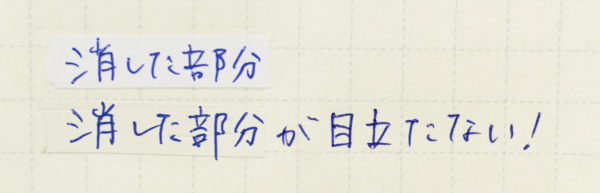 消した部分
消した部分が目立たない!